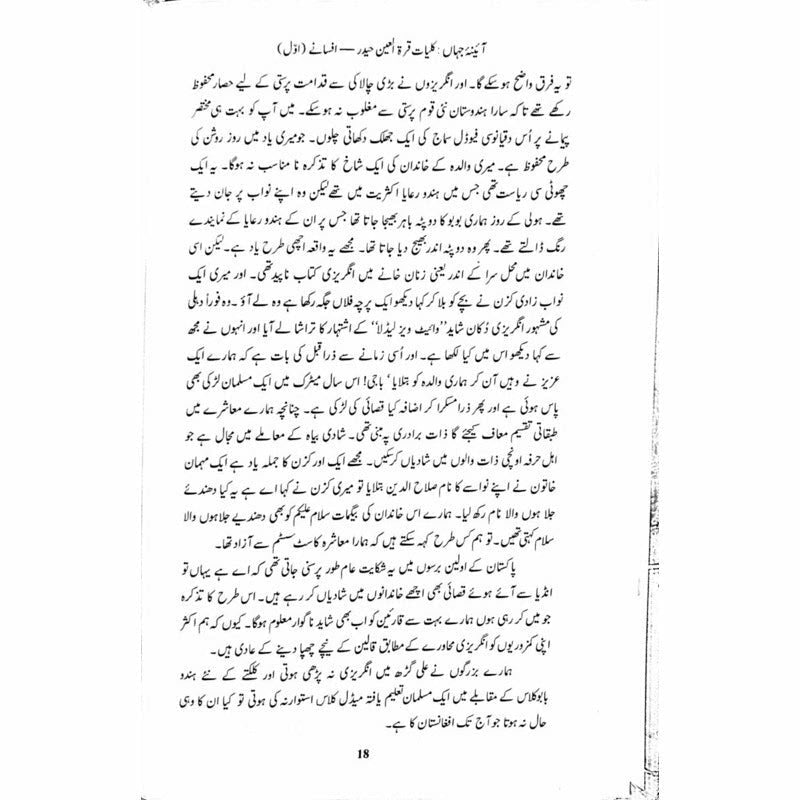 آئینۂ جہاں: کلیات قرۃ العین حیدر — افسانے (اوّل)
تو یہ فرق واضح ہو سکے گا۔ اور انگریزوں نے بڑی چالاکی سے قدامت پرستی کے لیے حصار محفوظ
رکھے تھے تا کہ سارا ہندوستان نئی قوم پرستی سے مغلوب نہ ہو سکے۔ میں آپ کو بہت ہی مختصر
پیمانے پر اُس دقیانوسی فیوڈل سماج کی ایک جھلک دکھاتی چلوں۔ جو میری یاد میں روز روشن کی
طرح محفوظ ہے۔ میری والدہ کے خاندان کی ایک شاخ کا تذکرہ نا مناسب نہ ہوگا۔ یہ ایک
چھوٹی سی ریاست تھی جس میں ہندو رعایا اکثریت میں تھے لیکن وہ اپنے نواب پر جان دیتے
تھے۔ ہولی کے روز ہماری بوبو کا دوپٹہ باہر بھیجا جاتا تھا جس پر ان کے ہندو رعایا کے نمایندے
رنگ ڈالتے تھے۔ پھر وہ دوپٹہ اندر بھیج دیا جاتا تھا۔ مجھے یہ واقعہ اچھی طرح یاد ہے۔ لیکن اسی
خاندان میں محل سرا کے اندر یعنی زنان خانے میں انگریزی کتاب ناپید تھی۔ اور میری ایک
نواب زادی کزن نے بچے کو بلا کر کہا دیکھو ایک پرچہ فلاں جگہ رکھا ہے وہ لے آؤ۔ وہ فوراً دہلی
کی مشہور انگریزی دُکان شاید ’’وائیٹ ویز لیڈلا‘‘ کے اشتہار کا تراشا لے آیا اور انہوں نے مجھ
سے کہا دیکھو اس میں کیا لکھا ہے۔ اور اُسی زمانے سے ذرا قبل کی بات ہے کہ ہمارے ایک
عزیز نے وہیں آن کر ہماری والدہ کو بتلایا ’باجی! اس سال میٹرک میں ایک مسلمان لڑکی بھی
پاس ہوئی ہے اور پھر ذرا مسکرا کر اضافہ کیا قصائی کی لڑکی ہے۔ چنانچہ ہمارے معاشرے میں
طبقاتی تقسیم معاف کیجئے گا ذات برادری پہ مبنی تھی۔ شادی بیاہ کے معاملے میں مجال ہے جو
اہل حرفہ اونچی ذات والوں میں شادیاں کر سکیں۔ مجھے ایک اور کزن کا جملہ یاد ہے ایک مہمان
خاتون نے اپنے نواسے کا نام صلاح الدین بتلایا تو میری کزن نے کہا اے ہے یہ کیا دھندئے
جلا ہوں والا نام رکھ لیا۔ ہمارے اس خاندان کی بیگمات سلام علیکم کو بھی دھندیے جلاہوں والا
سلام کہتی تھیں۔ تو ہم کس طرح کہہ سکتے ہیں کہ ہمارا معاشرہ کاسٹ سسٹم سے آزاد تھا۔
پاکستان کے اولین برسوں میں یہ شکایت عام طور پر سنی جاتی تھی کہ اے ہے یہاں تو
انڈیا سے آئے ہوئے قصائی بھی اچھے خاندانوں میں شادیاں کر رہے ہیں۔ اس طرح کا تذکرہ
جو میں کر رہی ہوں ہمارے بہت سے قارئین کو اب بھی شاید ناگوار معلوم ہوگا۔ کیوں کہ ہم اکثر
اپنی کمزوریوں کو انگریزی محاورے کے مطابق قالین کے نیچے چھپا دینے کے عادی ہیں۔
ہمارے بزرگوں نے علی گڑھ میں انگریزی نہ پڑھی ہوتی اور کلکتے کے نئے ہندو
بابو کلاس کے مقابلے میں ایک مسلمان تعلیم یافتہ میڈل کلاس استوار نہ کی ہوتی تو کیا ان کا وہی
حال نہ ہوتا جو آج تک افغانستان کا ہے۔
18